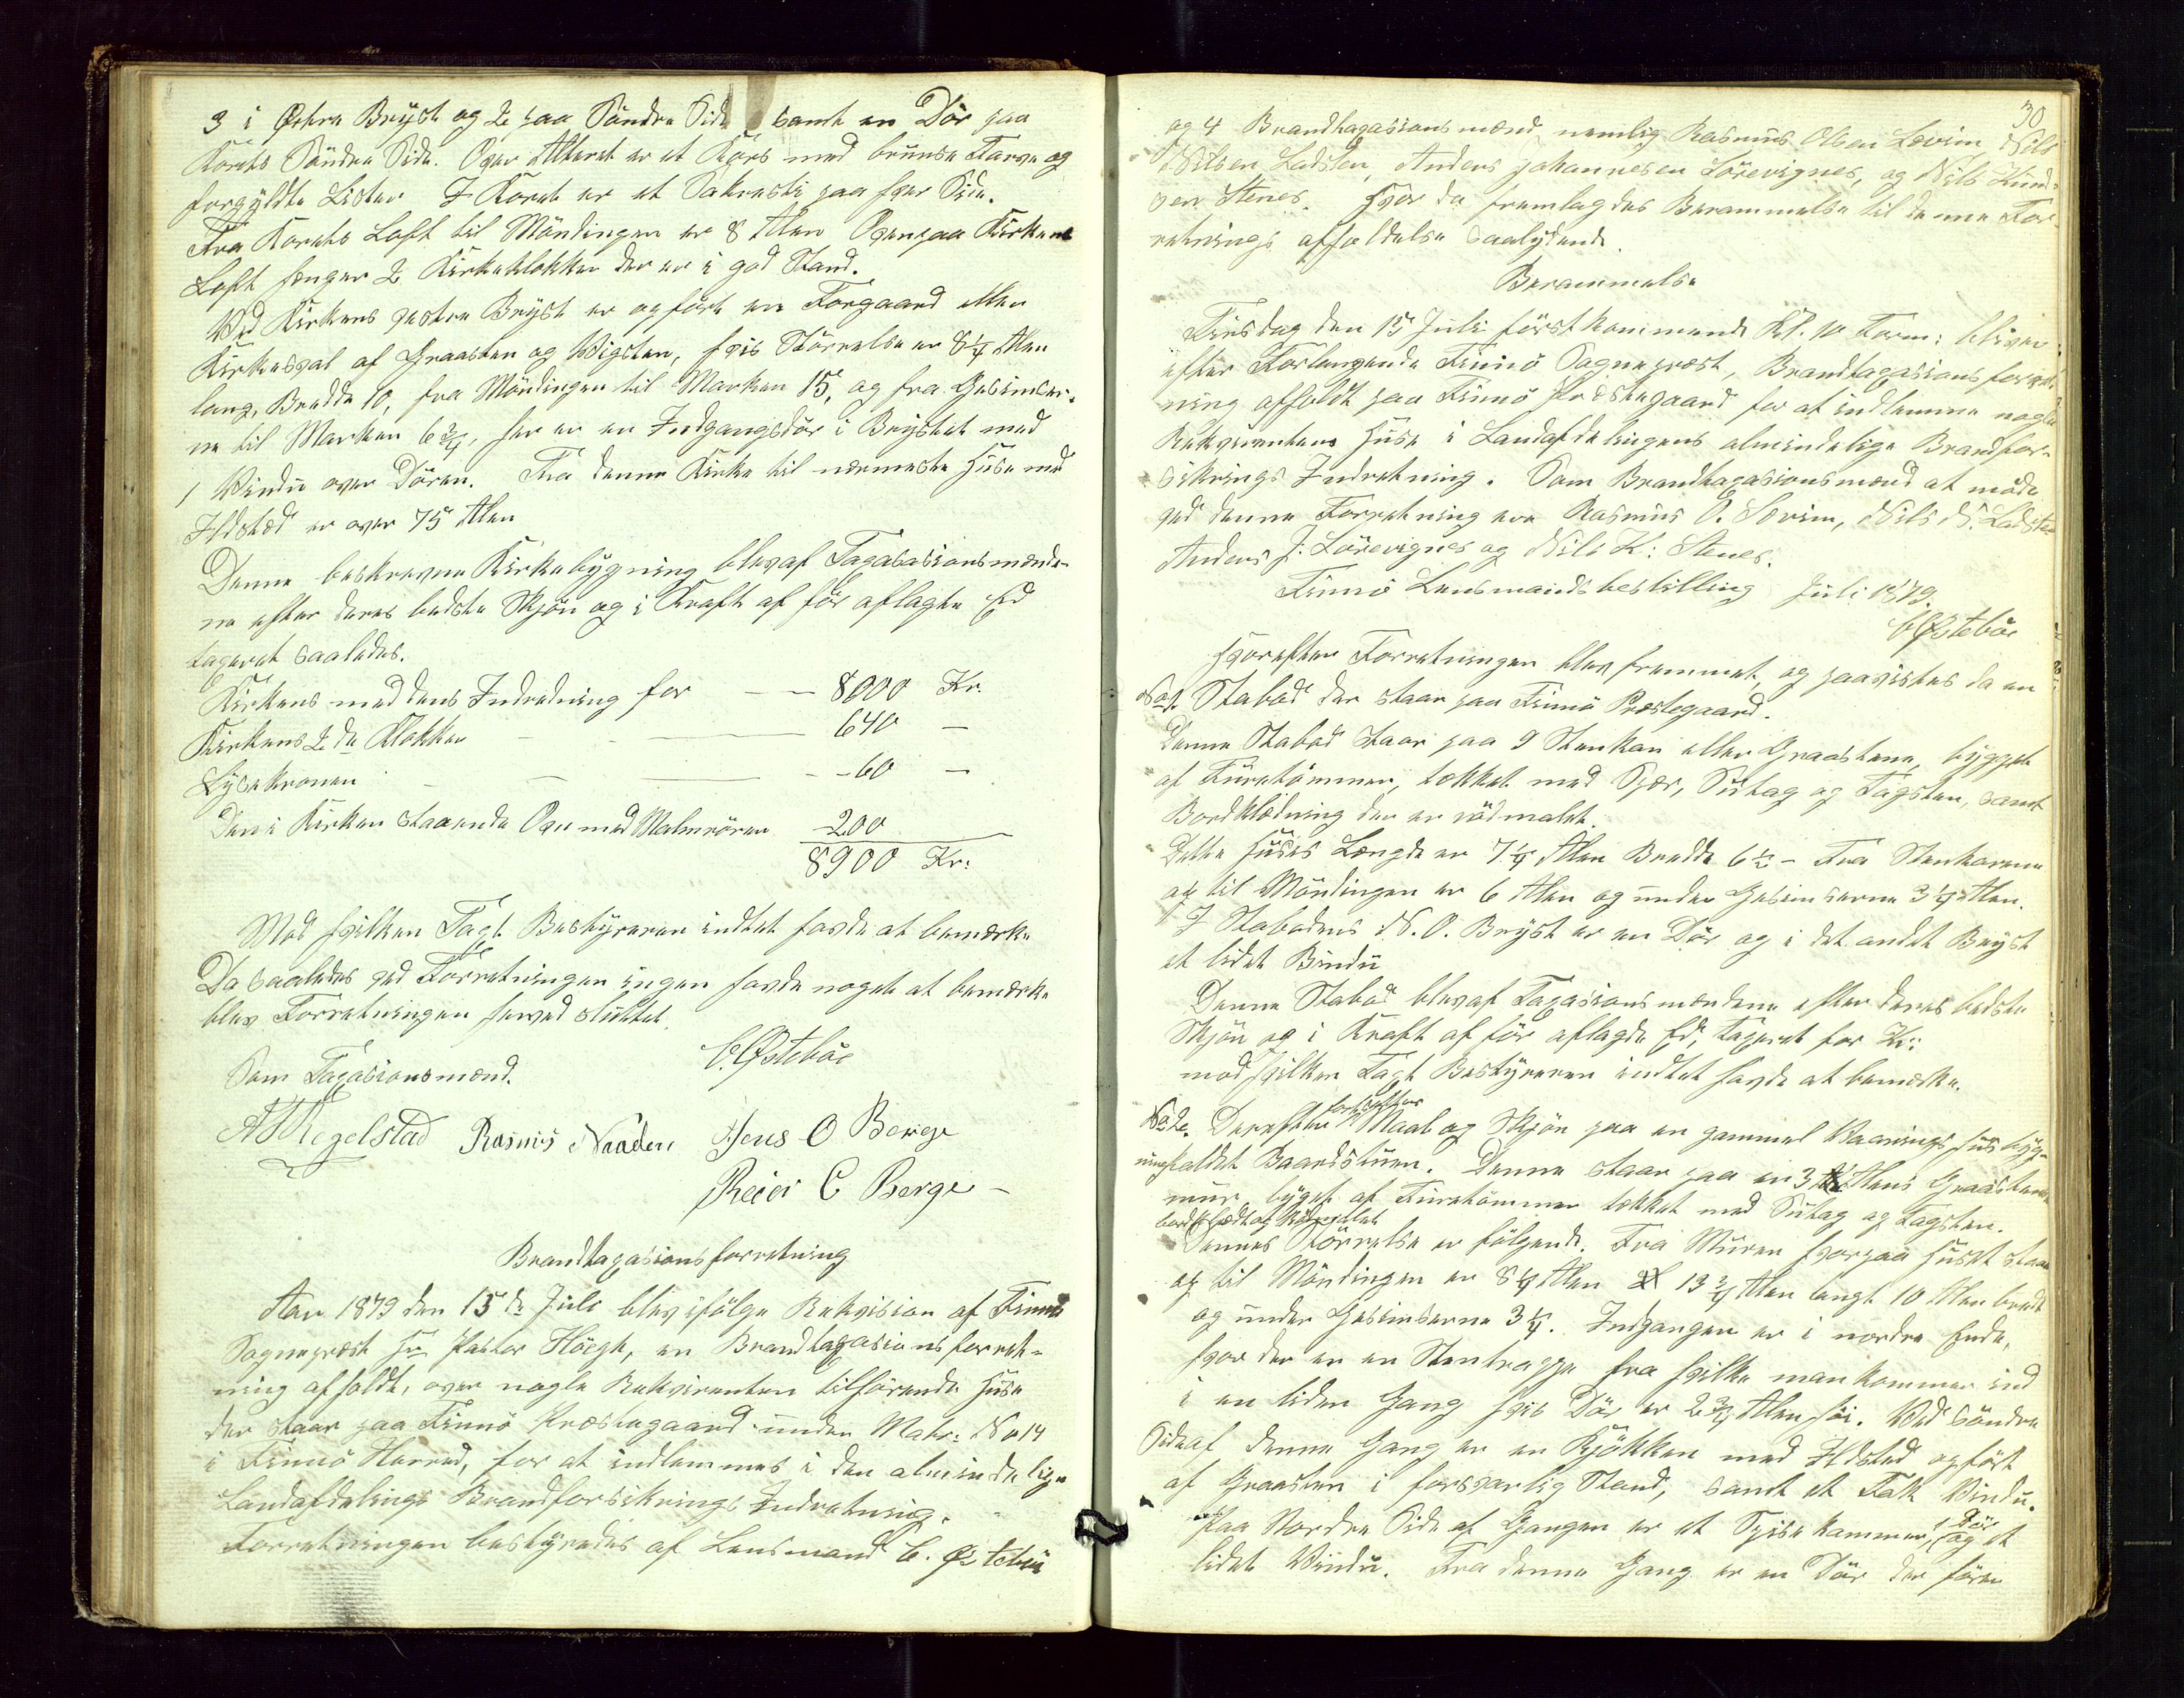 3 i Østre Bryst og 2 paa Söndre Side samt en Dör paa
Korets Söndre Side. Over Alteret er et Kors med brunse Farve og
forgyldte Lister. I Koret er et Sakresti paa hver Side.
Fra Korets Loft til Möndingen er 8 Alen. Ovenpaa Kirkens
Loft henger 2 Kirkeklokker der er i god Stand.
Ved Kirkens vestre Bryst er opfört en Forgaard eller
Kirkesval af Graasten og Vigsten, hvis Störrelse er 8 1/4 Alen
lang, Bredde 10, fra Möndingen til Marken 15, og fra Gesimser-
ne til Marken 6 3/4, her er en Indgangsdör i Brystet med
1 Vindu over Dören. Fra denne Kirke til nærmeste Huse med
Ildsted er over 75 Alen
Denne beskrevne Kirkebygning blev af Taxasasionsmænde-
ne efter deres bedste Skjön og i Kraft af för aflagte Ed
taxeret saaledes.
Kirkens med dens Indredning for — — 8000 Kr.
Kirkens 2de Klokker — 640 —
Lysekronen — — 60 —
Den i Kirken staaende Ovn med Malmrören 200
8900 Kr:
Mod hvilken Taxt Bestyreren indtet havde at bemærke
Da saaledes ved Forretningen ingen havde noget at bemærke
blev Forretningen herved sluttet.
C. Østebøe
Som Taxasionsmænd.
A T Regelstad Rasmus Naaden Jens O Berge
Reier C Berge
Brandtaxasionsforretning
Aar 1879 den 15de Juli blev ifölge Rekvision af Finnö
Sogneprest Hr Pastor Höegh, en Brandtaxasionsforret-
ning afholdt, over nogle Rekvirenten tilhörende Huse
der staar paa Finnö Prestegaard under Matr: No 14
i Finnö Herred, for at indlemmes i den almindelige
Landafdelings Brandforsikrings Indretning.
Forretningen bestyredes af Lensmand C. Østebøe
30
og 4 Brandtaxasionsmænd nemlig Rasmus Olsen Lovim, Nils
Nilsen Ladsten, Anders Johannesen Lörevignes, og Nils Knud-
sen Stenes. Hvor da fremlagdes Berammelse til denne For-
retnings afholdelse saalydende.
Berammelse
Tirsdag den 15 Juli förstkommende Kl. 10 Form: bliver
efter Forlangende Finnö Sogneprest, Brandtaxasionsforret-
ning afholdt paa Finnö Prestegaard for at indlemme nogle
Rekvirentens Huse i Landafdelingens almindelige Brandfor-
sikrings Indretning. Som Brandtaxasionsmænd at möde
ved denne Forretning ere Rasmus O. Lovim, Nils N. Ladsten
Anders J. Lörevignes og Nils K: Stenes.
Finnö Lensmandsbestilling Juli 1879.
C Østebøe
Hvorefter Forretningen blev fremmet, og paavistes da en
No 1. Stabod der staar paa Finnö Prestegaard.
Denne Stabod staar paa 9 Stenkar eller Graastene, bygget
af Furetömmer, tækket med Spær, Sutag og Tagsten, samt
Bordklædning der er rödmalet.
Dette Huses Længde er 7 1/4 Alen Bredde 6 1/2 - Fra Stenkarene
op til Möndingen er 6 Alen og under Gesimserne 3 1/4 Alen.
I Stabodens N.O. Bryst er en Dör og i det andet Bryst
et lidet Vindu
Denne Stabod blev af Taxasionsmændene efter deres bedste
Skjön og i Kraft af för aflagde Ed, taxeret for Kr:
mod hvilken Taxt Bestyreren indtet havde at bemærke.
No 2. Derefter fortsattes Maal og Skjön paa en gammel Vaanings hus byg-
ning kaldet Baardstuen. Denne staar paa en 3 Alens Graastens
mur, bygget af Furetömmer tækket med Sutag og Tagsten.
bordklædt og Rödmalet
Dennes Störrelse er fölgende. Fra Muren hvorpaa Huset staar
op til Möndingen er 8 1/4 Alen 13 3/4 Alen langt 10 Alen bredt
og under Gesimserne 3 1/4. Indgangen er i nordre Ende,
hvor der er en Stentrappe fra hvilke man kommer ind
i en liden Gang hvis Dör er 2 3/4 Alen höi. Ved söndre
Side af denne Gang er en Kjökken med Ildsted opfört
af Graasten i forsvarlig Stand, samt et Fak Vindu.
Paa Nordre Side af Gangen er et Spisekammer, 1 Dör og et
lidet Vindu. Fra denne Gang er en Dör der förer